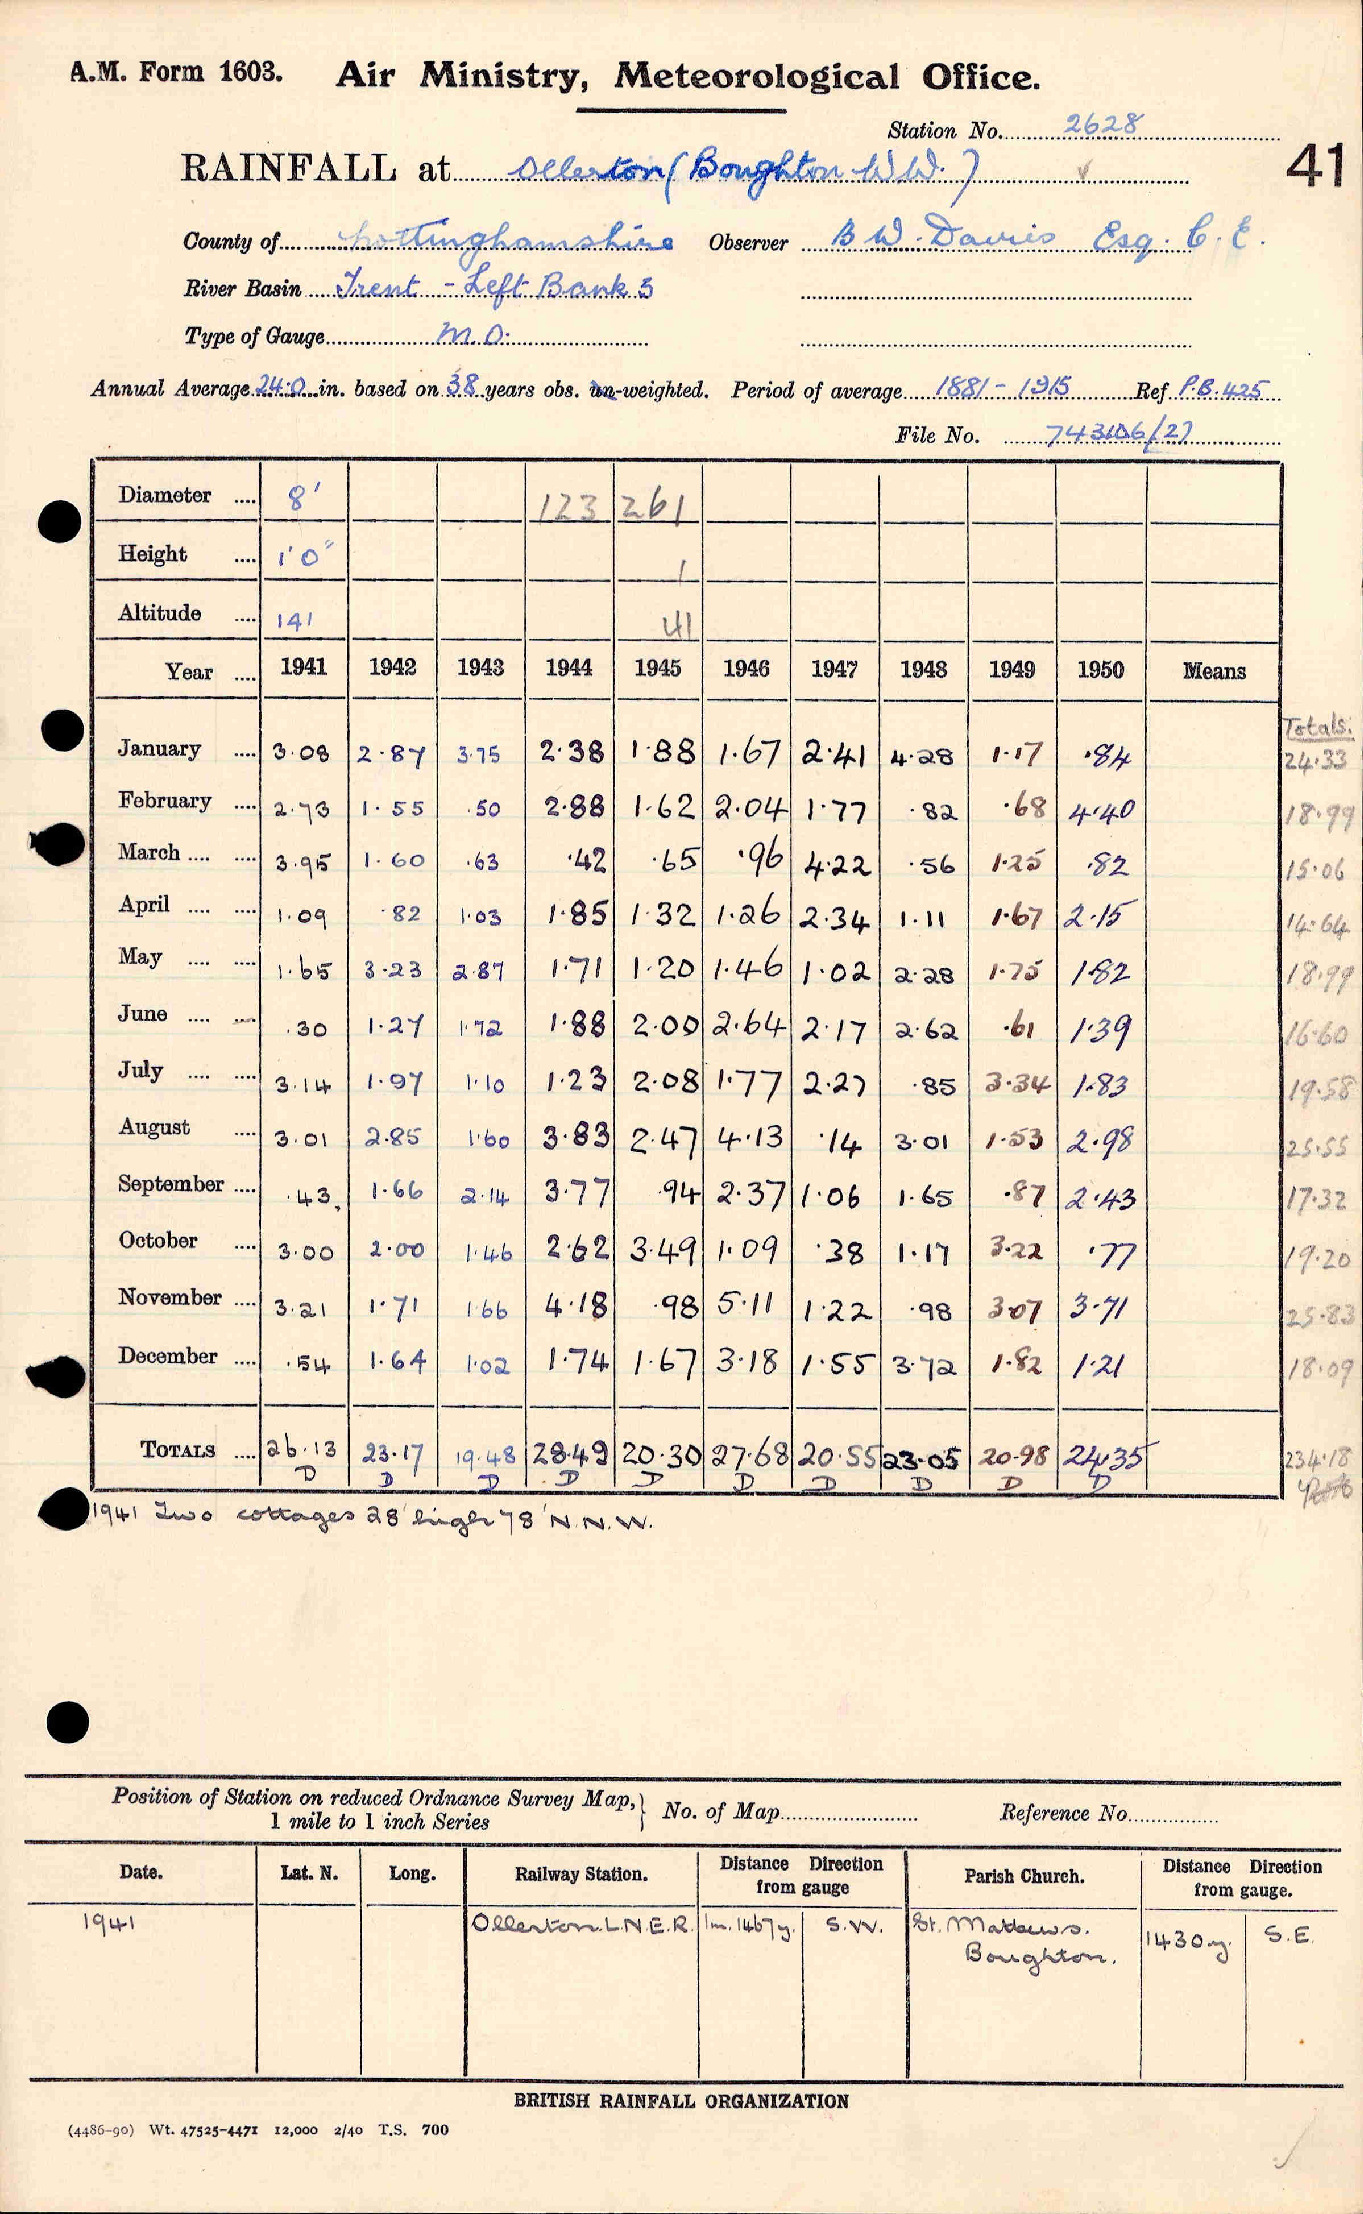 A.M. Form 1603. Air Ministry, Meteorological Office.
Station No. 2628
41
RAINFALL at Ollerton (Boughton W.W.)
County of Nottinghamshire Observer B W. Davies Esq. C. E.
River Basin Trent - Left Bank 3
Type of Gauge M.O.
Annual Average 24.0 in. based on 38 years obs. un-weighted. Period of average 1881 - 1915 Ref P.B. 425
File No. 743106/27
Diameter .... 8' 123 261
Height .... 1' 0" 1
Altitude .... 141 41
Year .... 1941 1942 1943 1944 1945 1946 1947 1948 1949 1950 Means
Totals.
January .... 3.08 2.87 3.75 2.38 1.88 1.67 2.41 4.28 1.17 .84 24.33
February .... 2.73 1.55 .50 2.88 1.62 2.04 1.77 .82 .68 4.40 18.99
March .... .... 3.95 1.60 .63 .42 .65 .96 4.22 .56 1.25 .82 15.06
April .... .... 1.09 .82 1.03 1.85 1.32 1.26 2.34 1.11 1.67 2.15 14.64
May .... .... 1.65 3.23 2.87 1.71 1.20 1.46 1.02 2.28 1.75 1.82 18.99
June .... .... .30 1.27 1.72 1.88 2.00 2.64 2.17 2.62 .61 1.39 16.60
July .... .... 3.14 1.97 1.10 1.23 2.08 1.77 2.27 .85 3.34 1.83 19.58
August .... 3.01 2.85 1.60 3.83 2.47 4.13 .14 3.01 1.53 2.98 25.55
September .... .43 1.66 2.14 3.77 .94 2.37 1.06 1.65 .87 2.43 17.32
October .... 3.00 2.00 1.46 2.62 3.49 1.09 .38 1.17 3.22 .77 19.20
November .... 3.21 1.71 1.66 4.18 .98 5.11 1.22 .98 3.07 3.71 25.83
December .... .54 1.64 1.02 1.74 1.67 3.18 1.55 3.72 1.82 1.21 18.09
TOTALS .... 26.13 23.17 19.48 28.49 20.30 27.68 20.55 23.05 20.98 24.35 234.18
D D D D D D D D D D
1941 Two cottages 28' high 78' N.N.W.
Position of Station on reduced Ordnance Survey Map, } No. of Map Reference No.
1 mile to 1 inch Series
Date. Lat. N. Long. Railway Station. Distance Direction from gauge Parish Church. Distance Direction from gauge.
1941 Ollerton L.N.E.R. 1m. 1467y. S.W. St. Mathews. 1430y. S.E.
Boughton.
BRITISH RAINFALL ORGANIZATION
(4486-90) Wt. 47525-4471 12,000 2/40 T.S. 700